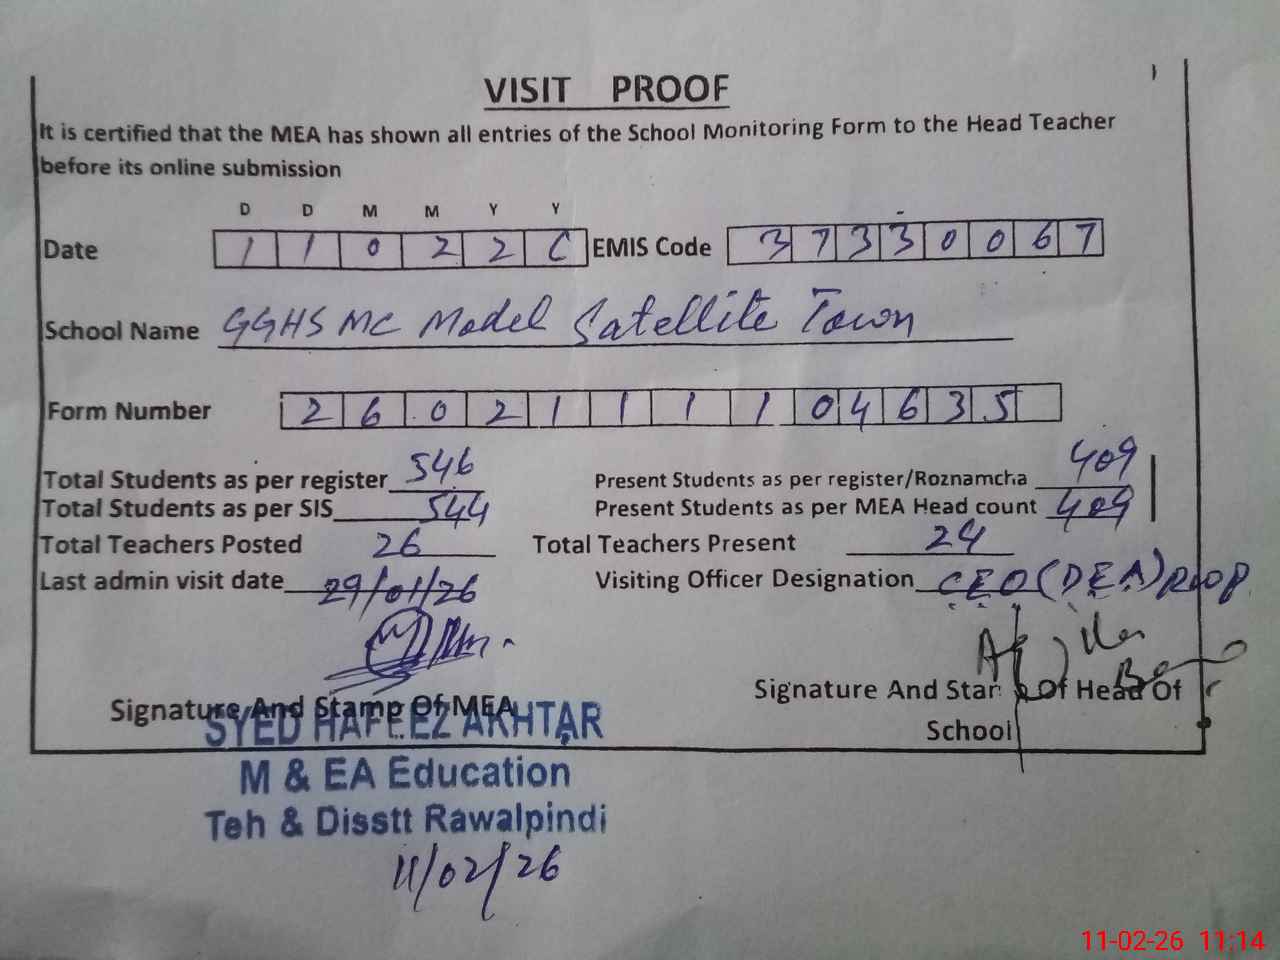 VISIT PROOF
It is certified that the MEA has shown all entries of the School Monitoring Form to the Head Teacher
before its online submission
D D M M Y Y
Date 1 1 0 2 2 6 EMIS Code 3 7 3 3 0 0 6 7
School Name GGHS MC Model Satellite Town
Form Number 2 6 0 2 1 1 1 1 0 4 6 3 5
Total Students as per register 546 Present Students as per register/Roznamcha 409
Total Students as per SIS 544 Present Students as per MEA Head count 409
Total Teachers Posted 26 Total Teachers Present 24
Last admin visit date 29/01/26 Visiting Officer Designation CEO (DEA)
Signature And Stamp Of MEA Signature And Of Head Of
School
SYED HAFEEZ AKHTAR
M & EA Education
Teh & Disstt Rawalpindi
11/02/26
11-02-26 11:14